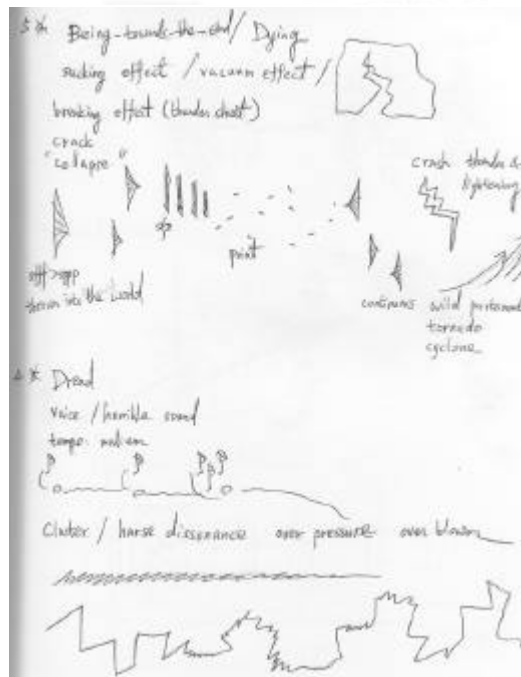 5 * Being-towards-the-end / Dying
sucking effect / vacuum effect /
breaking effect (thunder sheet)
crack
"collapse"
crash thunder &
lightening
sfp
point
thrown into the world
continuous wild
tornado
cyclone
4 * Dread
Voice / horrible sound
tempo: medium
Cluster / harse dissonance over pressure over blown